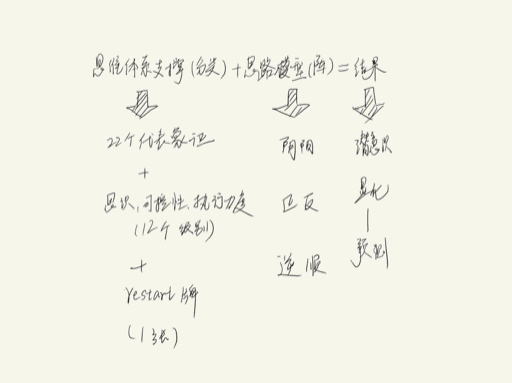 思维体系支撑(分支)+思路模型(阵)=结果
22个代表象征
+
意识,可控性,执行力度
(12个级别)
+
restart牌
(1张)
阴阳
正反
逆顺
潜意识
显化
预测